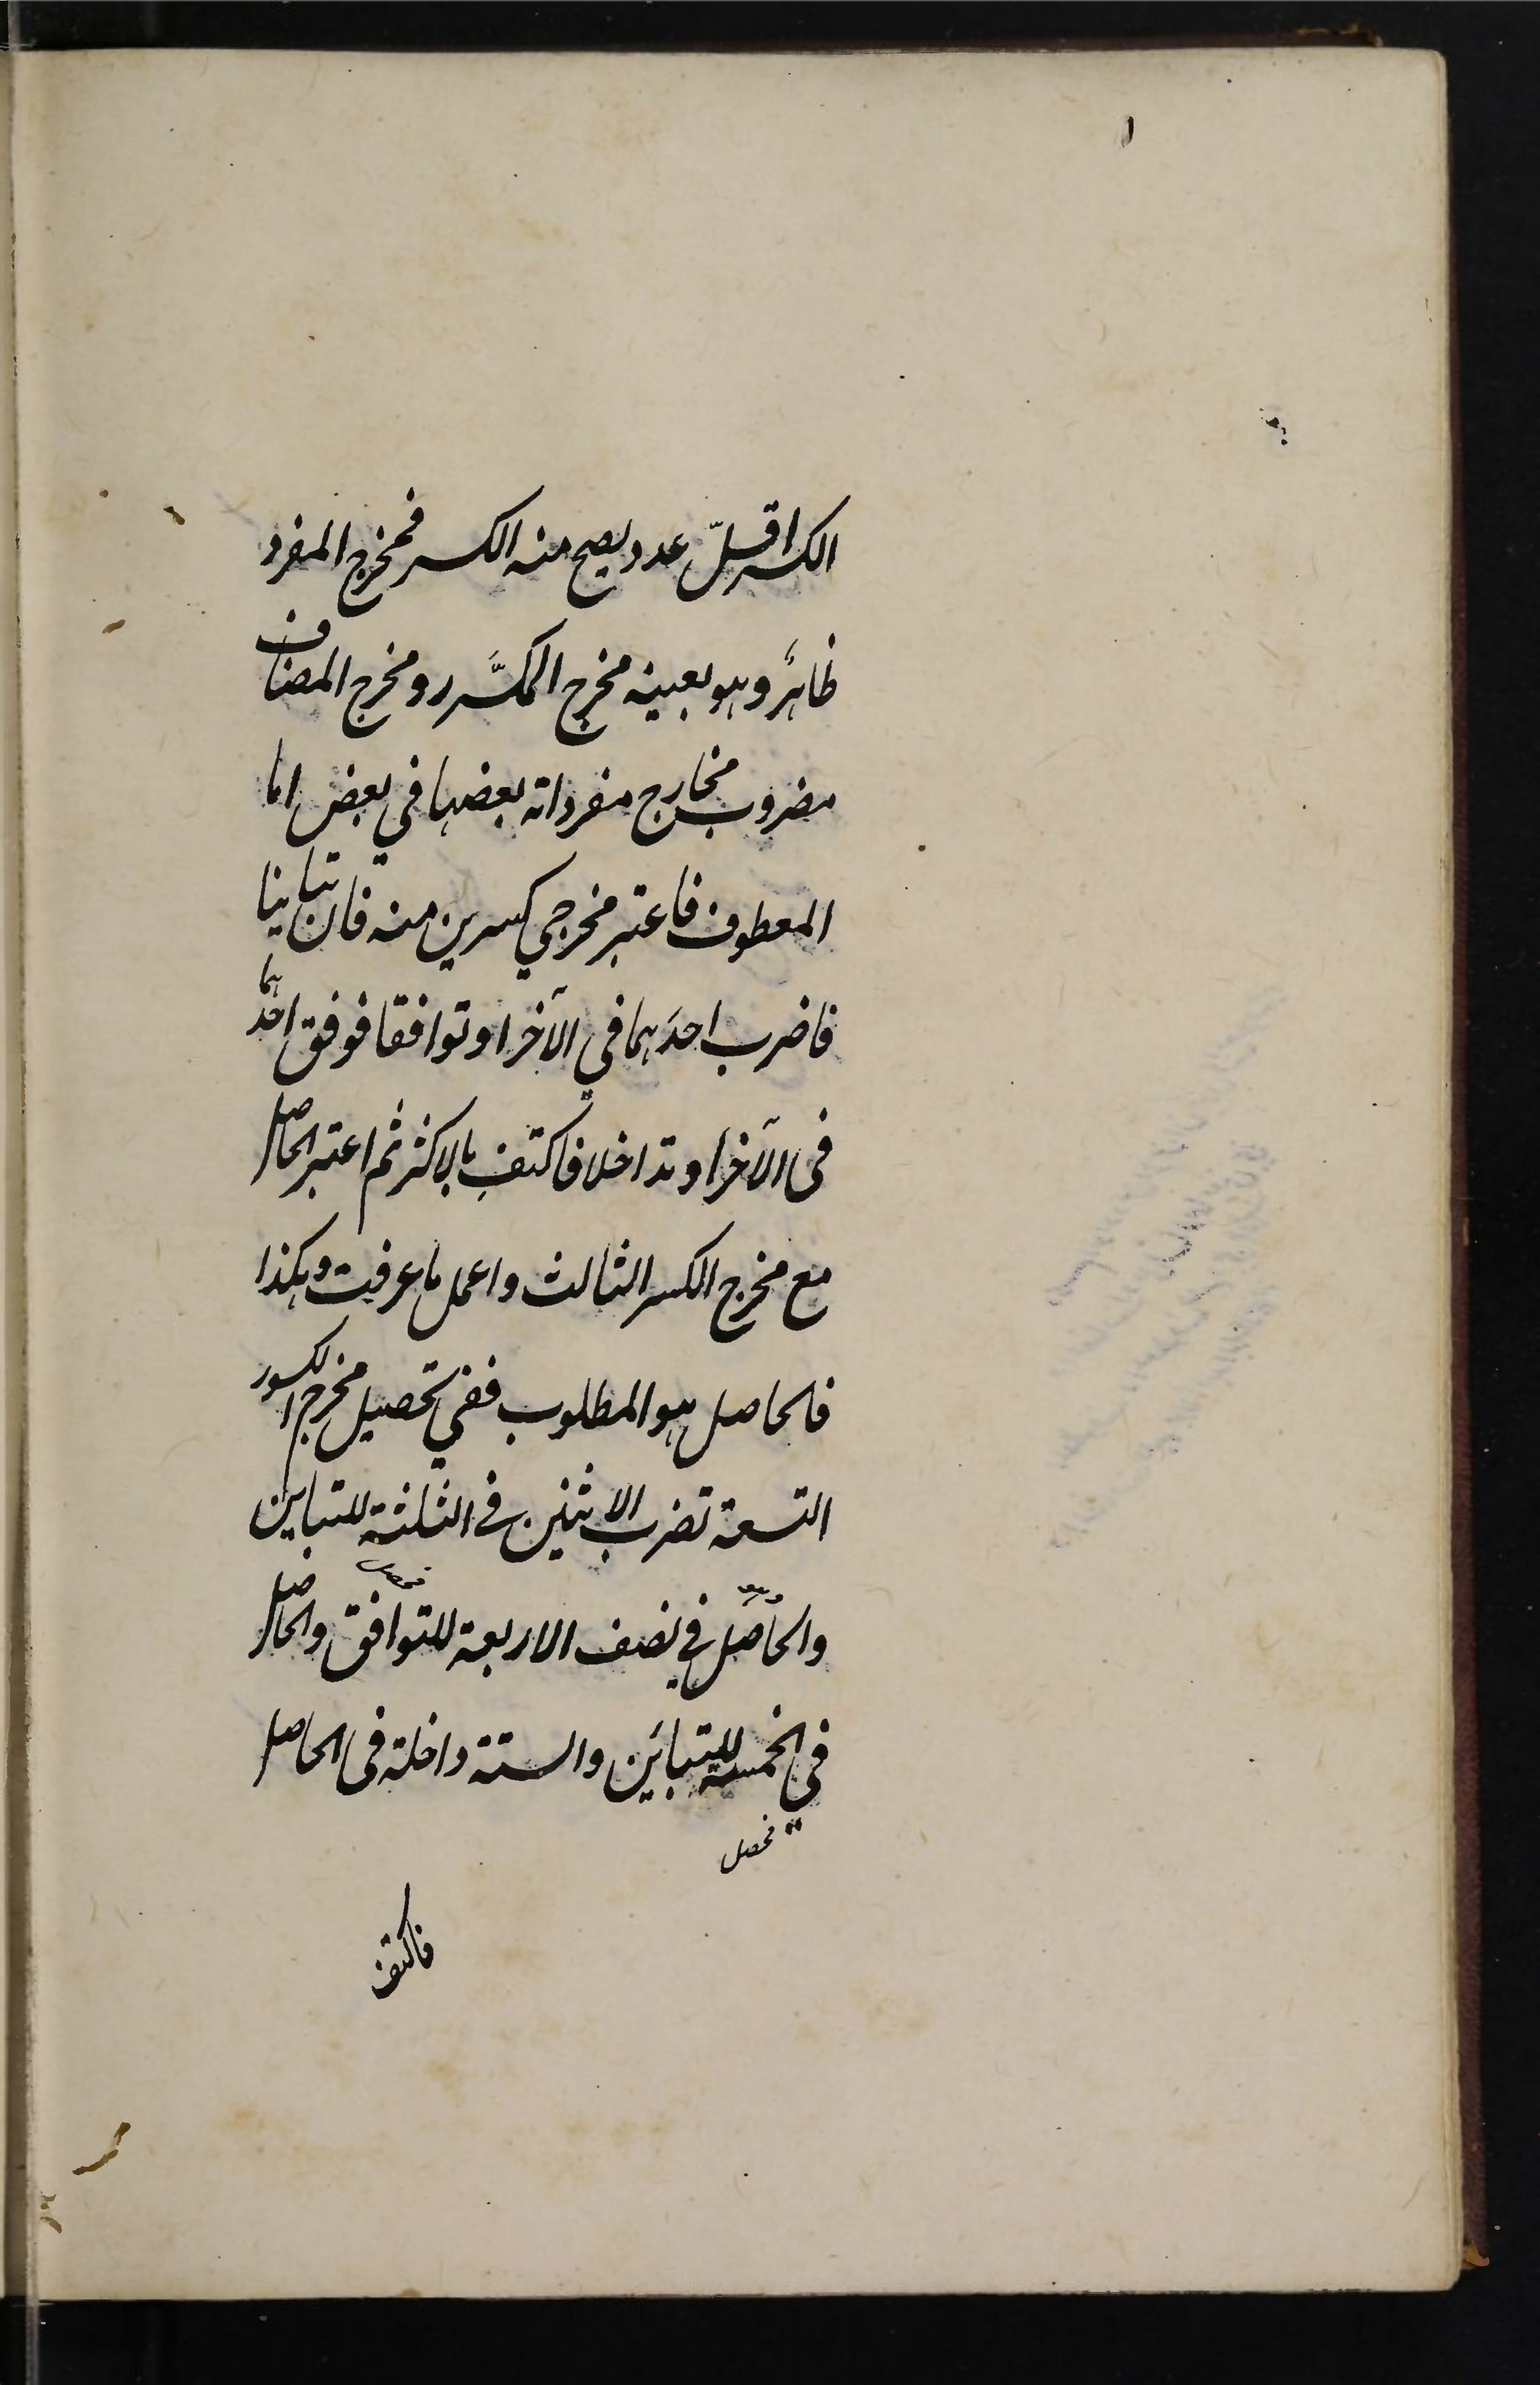 الكسر اقلّ عدد يصح منه الكسر فمخرج المفرد
ظاهرٌ وهو بعينه مخرج المكسَّرر ومخرج المضاف
مضروب مخارج مفرداته بعضها في بعض اما
المعطوف فاعتبر مخرجي كسرين منه فان تباينا
فاضرب احدَهما في الآخر او توافقا فوفق احدهما
في الآخر او تداخلا فاكتفِ بالاكثر ثم اعتبر الحاصل
مع مخرج الكسر الثالث واعمل ما عرفت وهكذا
فالحاصل هو المطلوب ففي تحصيل مخرج الكسور
التسعة تضرب الاثنين في الثلثة للتباين
والحاصل في نصف الاربعة للتوافق والحاصل
في الخمسة للتباين والستة داخلة في الحاصل
فاكتف